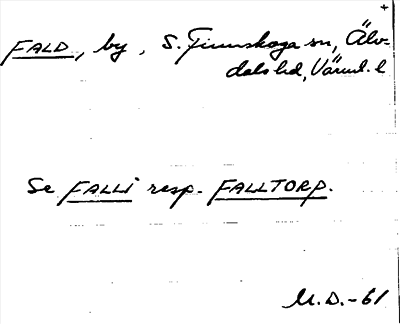 +
FALD, by, S. Finnskoga sn, Älv-
dals hd, Värml. l
Se FALLI resp. FALLTORP.
M.D.-61